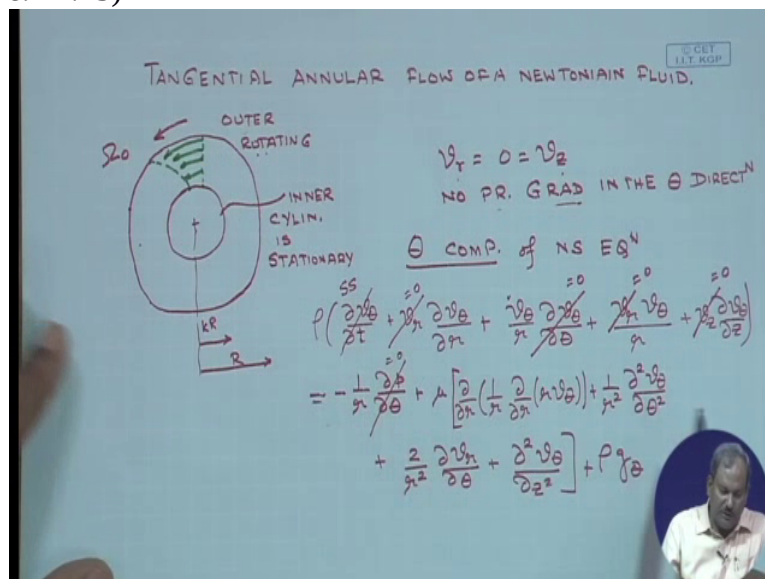 © CET
I.I.T. KGP
TANGENTIAL ANNULAR FLOW OF A NEWTONIAIN FLUID.
OUTER
ROTATING
Ω0
INNER
CYLIN.
IS
STATIONARY
kR
R
vr = 0 = vz
NO PR. GRAD IN THE θ DIRECTᴺ
θ COMP. of NS EQᴺ
SS =0 =0 =0 =0
ρ(∂vθ/∂t + vr ∂vθ/∂r + vθ/r ∂vθ/∂θ + vr vθ/r + vz ∂vθ/∂z)
= - 1/r ∂p/∂θ =0 + μ[∂/∂r (1/r ∂/∂r (r vθ)) + 1/r² ∂²vθ/∂θ²
+ 2/r² ∂vr/∂θ + ∂²vθ/∂z²] + ρ gθ